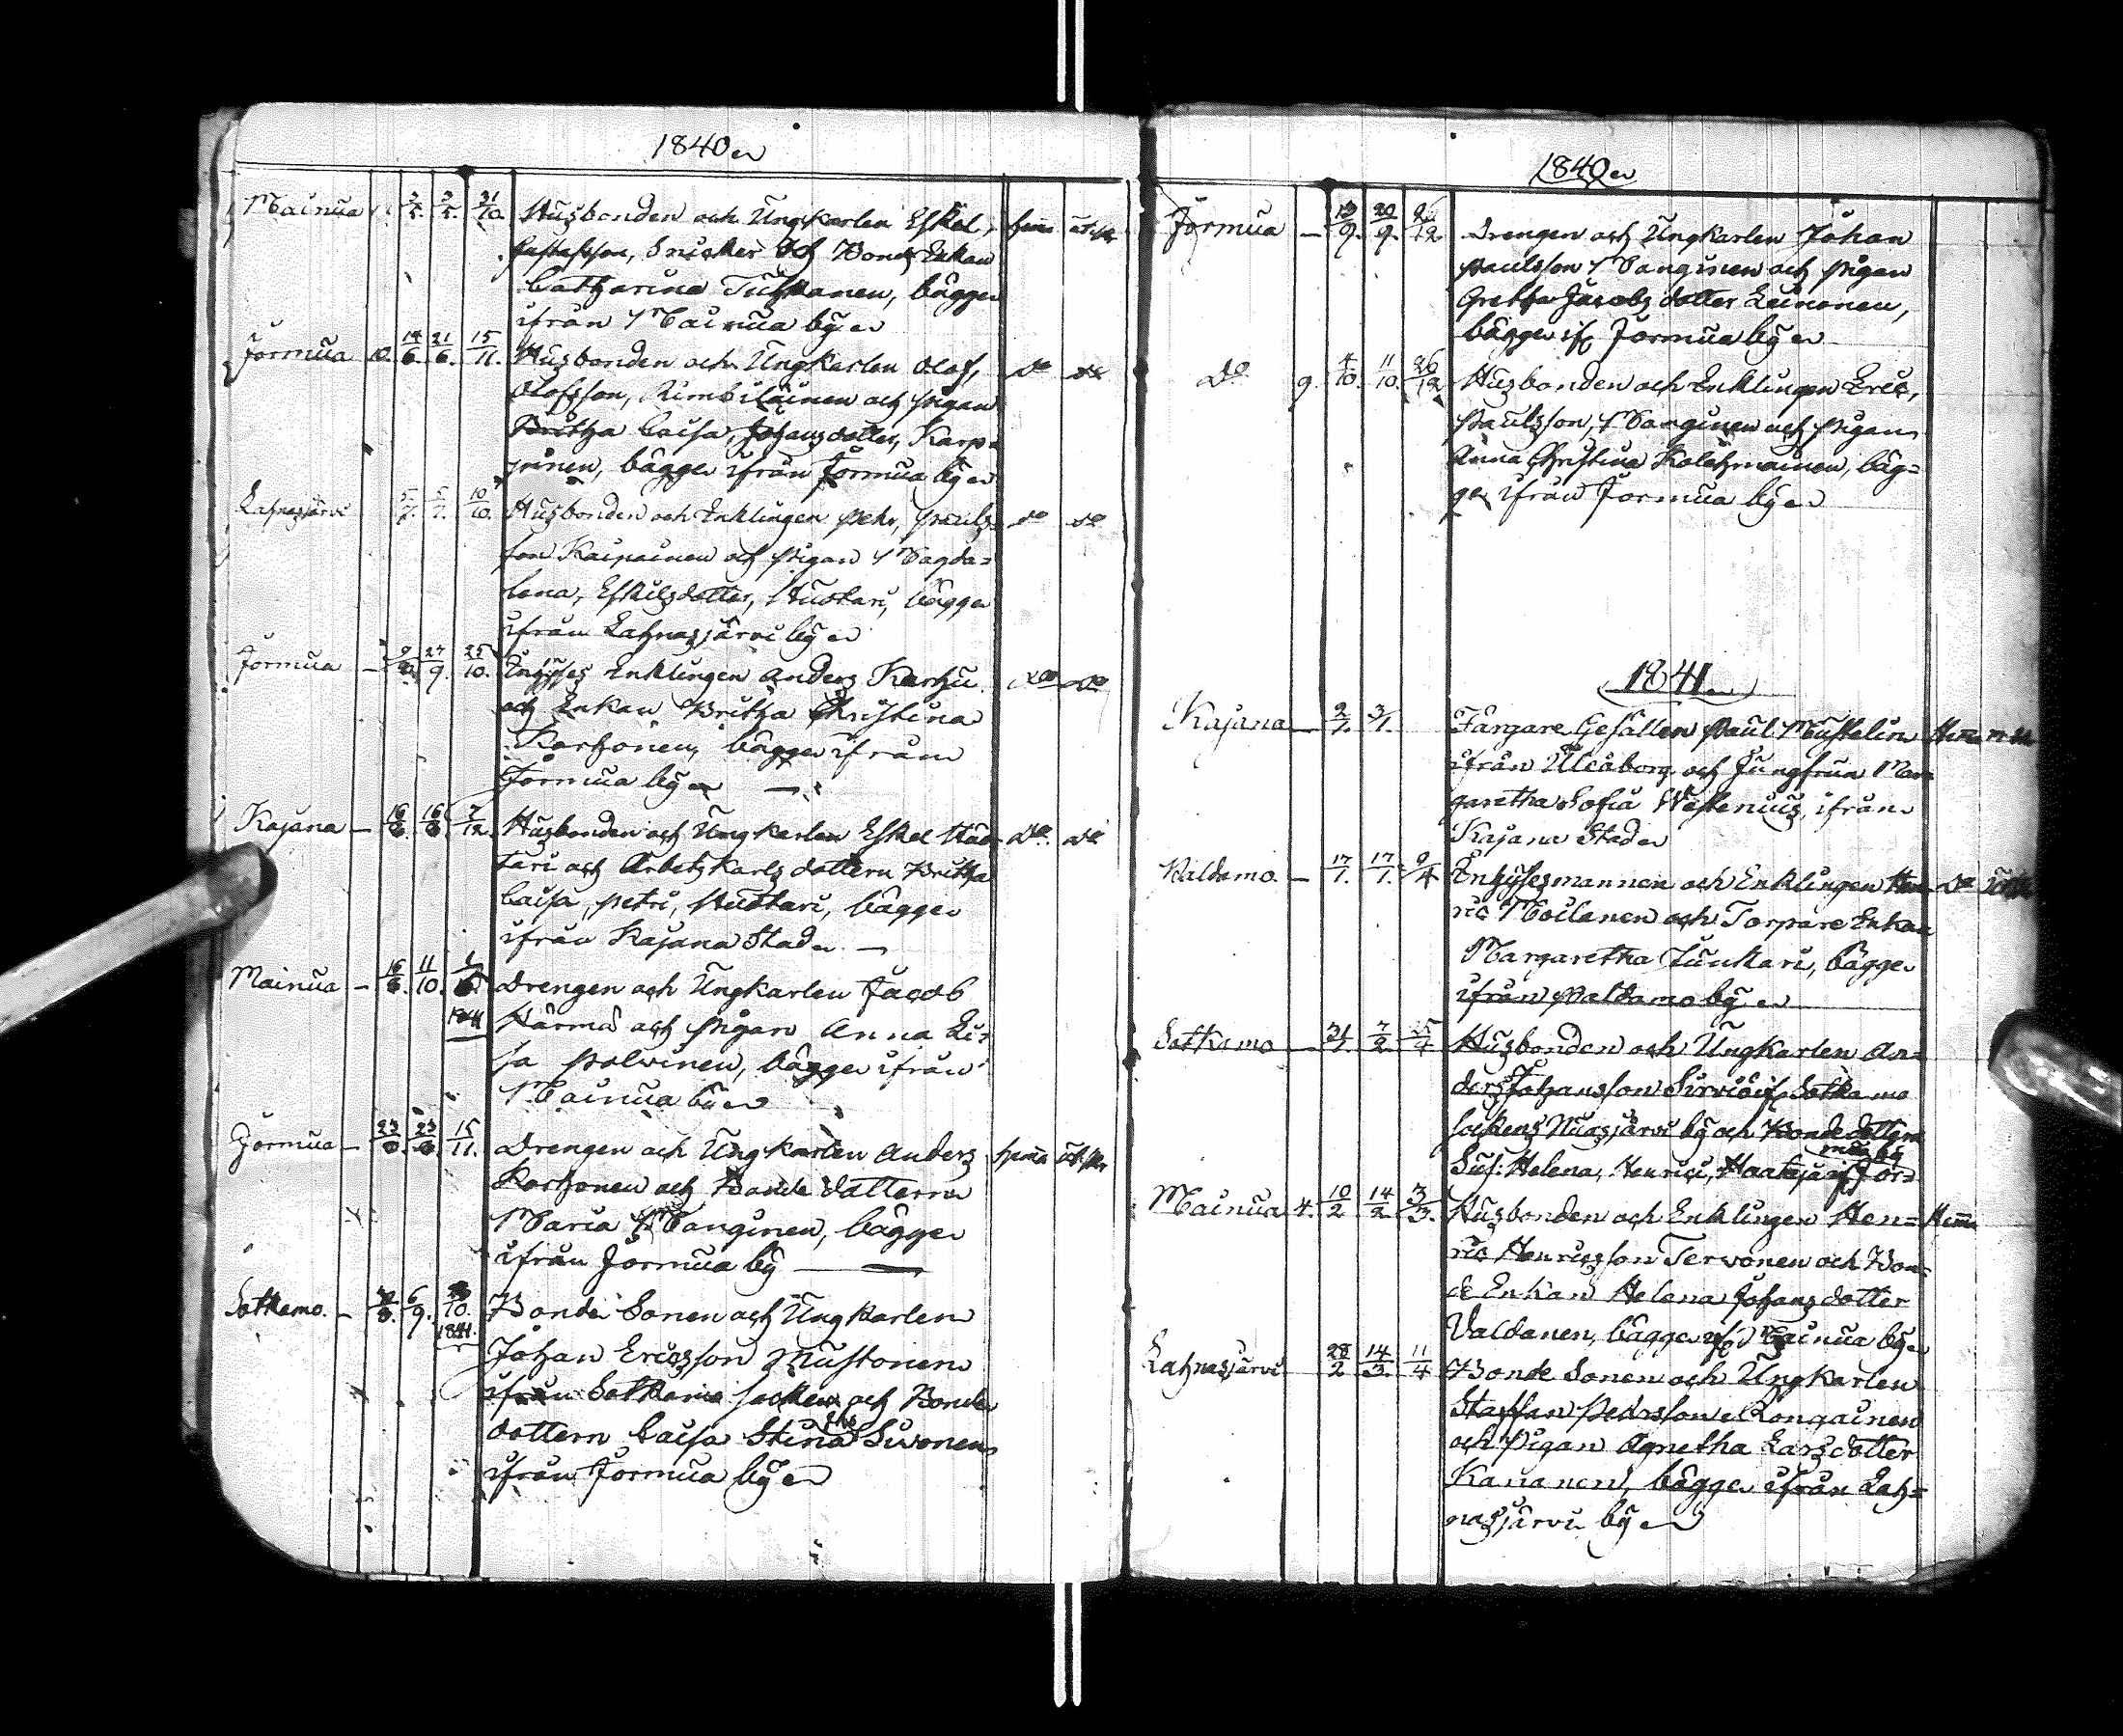 1840
Mainua 3/5. 3/5. 31/10. Husbonden och Ungkarlen Eskel,
Gustafsson, Snicker och Bonde Enkan
Catharina Tuhkanen, bägge
ifrån Mainua by
Jormua 10. 14/6. 21/6. 15/11. Husbonden och Ungkarlen Olof,
Olofsson, Kimbiläinen och pigan
Britha Caisa, Johansdotter, Karp-
pinen, bägge ifrån Jormua by
Lahnasjärvi 5/7. 5/7. 10/10. Husbonden och Enklingen Pehr, Pauls-
son Kaipainen och pigan Magda=
lena, Eskilsdotter, Huotari, bägge
ifrån Lahnasjärvi by
Jormua 27/9. 25/10. Inhyses Enklingen Anders Karhu
och Enkan Britha Christina
Korhonen, bägge ifrån
Jormua by
Kajana 16/8. 16/8. 7/12. Husbonden och Ungkarlen Eskel Huo-
tari och Arbetskarls dottern Britha
Caisa, Petri, Huotari, bägge
ifrån Kajana Stad
Mainua 16/8. 11/10. Drengen och Ungkarlen Jacob
1841 Härmä och pigan Anna Li-
sa Polvinen, bägge ifrån
Mainua by
Jormua 23/8. 23/8. 15/11. Drengen och Ungkarlen Anders
Korhonen och Bonde dottern
Maria Manginen, bägge
ifrån Jormua by
Sotkamo. 6/9. 10. Bonde Sonen och Ungkarlen
1841.
Johan Ericsson Mustonen
ifrån Sotkamo socken och Bonde
dottern Caisa Stina Sivonen
ifrån Jormua by
1840
Jormua 13/9. 20/9. 26/12. Drengen och Ungkarlen Johan
Paulsson Manginen och pigan
Gretha Jacobs dotter Leinonen,
bägge if. Jormua by
Do 9. 4/10. 11/10. 26/12. Husbonden och Enklingen Eric,
Paulsson, Manginen och pigan
Anna Christina Kolehmainen, bäg=
ge ifrån Jormua by
1841
Kajana 2/1. 3/1. Färgare Gesällen Paul Mustelin
ifrån Uleåborg och Jungfrun Mar-
garetha Sofia Westenius, ifrån
Kajana Stad
Paldamo 17/1. 17/1. 9/4 Inhysesmannen och Enklingen Hen-
ric Moilanen och Torpare Enkan
Margaretha Junkari, bägge
ifrån Paldamo by
Sotkamo 31/1. 7/2. 25/4 Husbonden och Ungkarlen An=
ders Johansson Sirviö if. Sotkamo
Sockens Nuasjärvi by och Bonde dottern
mua by
Sus: Helena, Henrici, Haataja if. Jor=
Mainua 4. 10/2 14/2. 3/3. Husbonden och Enklingen Hen=
ric Henricsson Tervonen och Bon=
de Enkan Helena Johansdotter
Valdanen, bägge if. Mainua by
Lahnasjärvi 28/2 14/3. 11/4 Bonde Sonen och Ungkarlen
Staffan Pedersson Rongainen
och Pigan Agnetha Larsdotter
Kananen, bägge ifrån Lah=
nasjärvi by